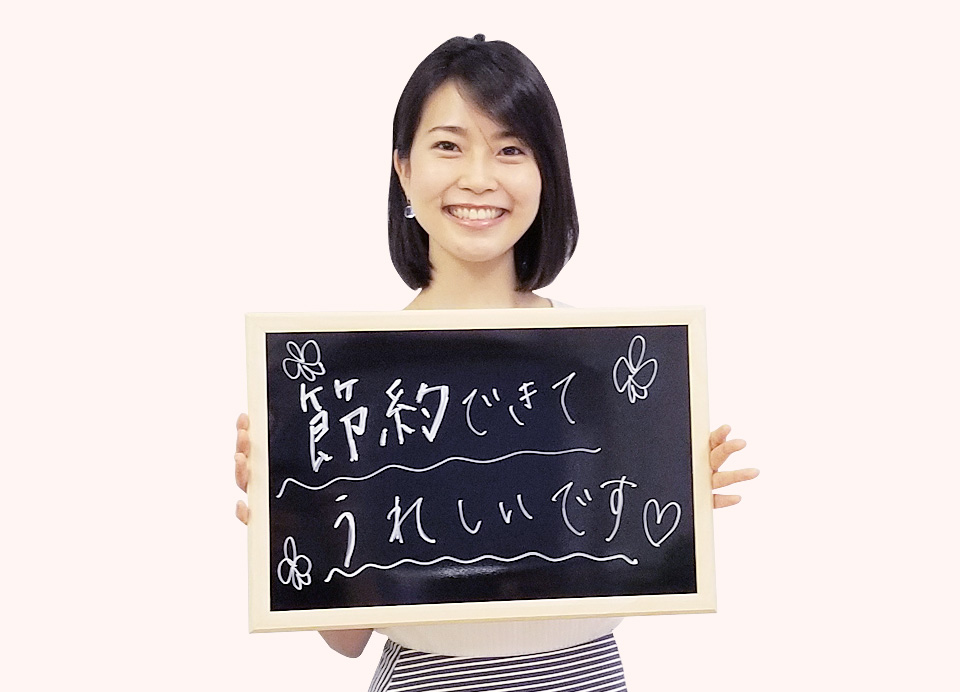 節約できて
うれしいです♡